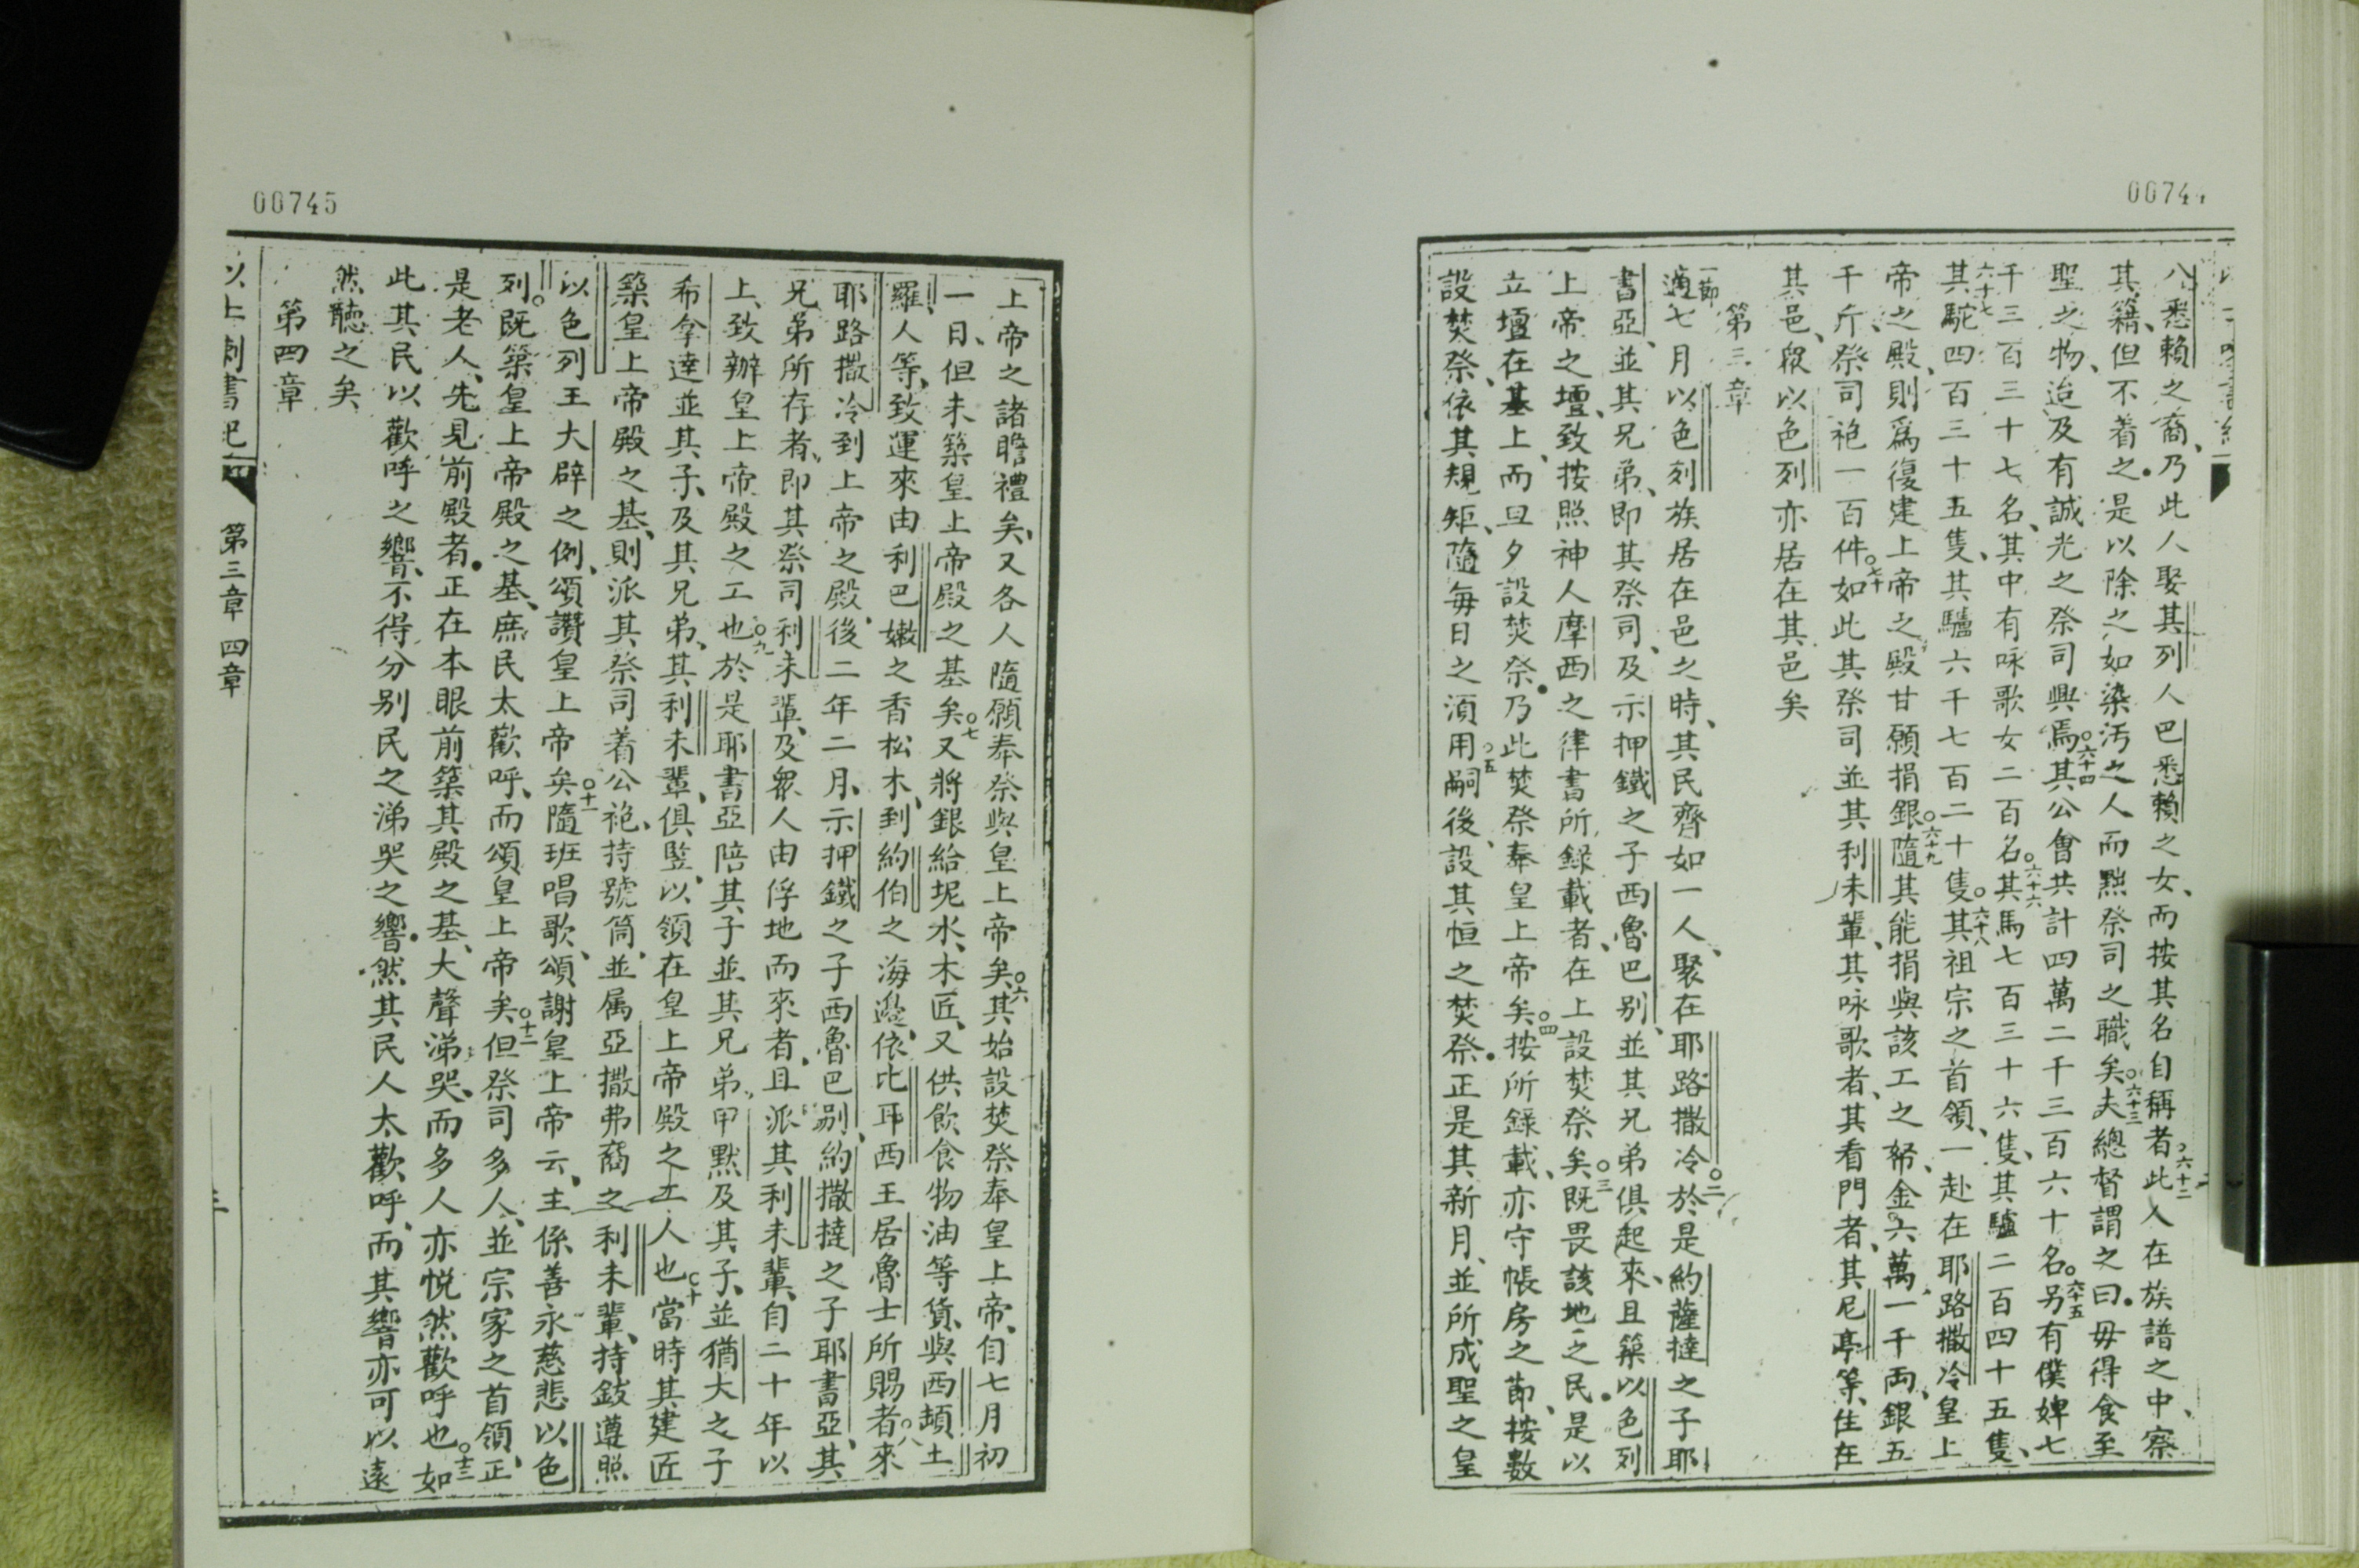 00744
八悉賴之裔、乃此人娶其列人巴悉賴之女、而按其名自稱者○六十二此人在族譜之中、察
其籍、但不着之是以除之如染污之人而黜祭司之職矣○六十三夫總督謂之曰毋得食至
聖之物、迨及有誠光之祭司興焉○六十四其公會共計四萬二千三百六十名○六十五另有僕婢七
千三百三十七名、其中有咏歌女二百名○六十六其馬七百三十六隻、其驢二百四十五隻、
六十七其駝四百三十五隻、其驢六千七百二十隻○六十八其祖宗之首領、一赴在耶路撒冷皇上
帝之殿、則爲復建上帝之殿甘願捐銀○六十九隨其能捐與該工之帑、金六萬一千兩、銀五
千斤、祭司袍一百件○七十如此其祭司並其利未輩、其咏歌者、其看門者、其尼亭等、住在
其邑、眾以色列亦居在其邑矣
第三章
一節適七月以色列族居在邑之時、其民齊如一人、聚在耶路撒冷○二於是約薩撻之子耶
書亞、並其兄弟、即其祭司、及示押鐵之子西魯巴别、並其兄弟俱起來、且築以色列
上帝之壇、致按照神人摩西之律書所錄載者、在上設焚祭矣○三既畏該地之民是以
立壇在基上、而旦夕設焚祭乃此焚祭奉皇上帝矣○四按所錄載、亦守帳房之節、按數
設焚祭、依其規矩、隨每日之須用○五嗣後、設其恒之焚祭正是其新月、並所成聖之皇
00745
上帝之諸瞻禮矣、又各人隨願奉祭與皇上帝矣○六其始設焚祭奉皇上帝、自七月初
一日、但未築皇上帝殿之基矣○七又將銀給坭水、木匠、又供飲食物油等貨、與西頓、土
羅、人等、致運來由利巴嫩之香松木、到約伯之海邊、依比耶西王居魯士所賜者○八來
耶路撒冷到上帝之殿、後二年二月、示押鐵之子西魯巴别、約撒撻之子耶書亞、其
兄弟所存者、即其祭司利未輩、及眾人由俘地而來者、且派其利未輩、自二十年以
上、致辦皇上帝殿之工也○九於是耶書亞陪其子並其兄弟、甲默及其子、並猶大之子
希拿達並其子、及其兄弟、其利未輩、俱監、以領在皇上帝殿之工人也○十當時其建匠
築皇上帝殿之基、則派其祭司着公袍、持號筒、並屬亞撒弗裔之利未輩、持鈸遵照
以色列王大辟之例、頌讚皇上帝矣○十一隨班唱歌、頌謝皇上帝云、主係善永慈悲以色
列。既築皇上帝殿之基、庶民太歡呼、而頌皇上帝矣○十二但祭司多人、並宗家之首領、正
是老人、先見前殿者正在本眼前築其殿之基、大聲涕哭、而多人亦悅然歡呼也○十三如
此其民以歡呼之響、不得分别民之涕哭之響然其民人太歡呼、而其響亦可以遠
然聽之矣
第四章
以上喇書 第三章 四章
三